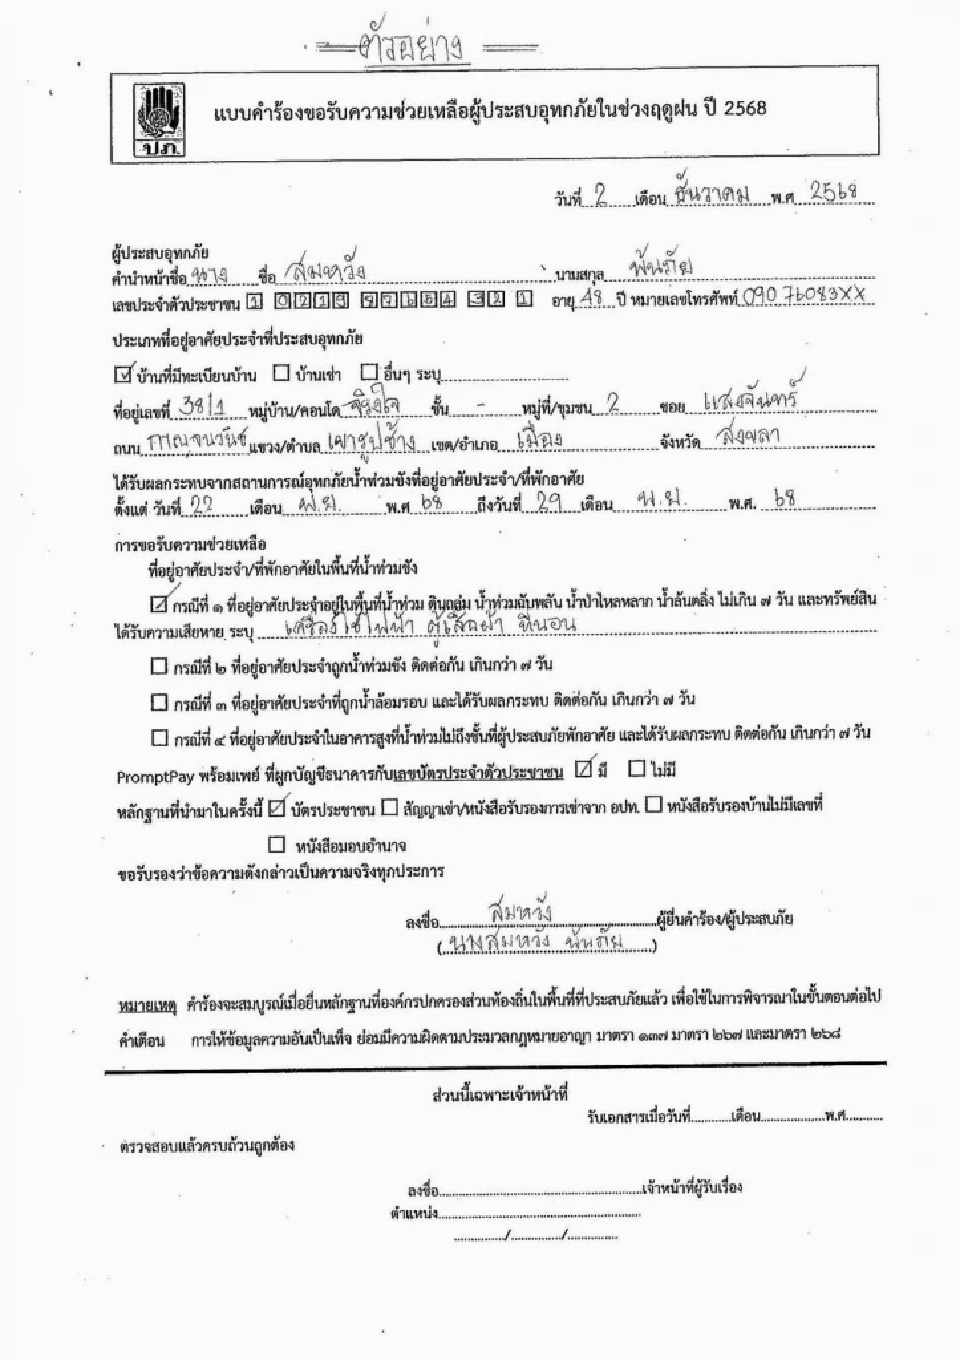 ตัวอย่าง
แบบคำร้องขอรับความช่วยเหลือผู้ประสบอุทกภัยในช่วงฤดูฝน ปี 2568
ปภ.
วันที่ 2 เดือน ธันวาคม พ.ศ. 2568
ผู้ประสบอุทกภัย
คำนำหน้าชื่อ นาง ชื่อ สมหวัง นามสกุล พ้นภัย
เลขประจำตัวประชาชน อายุ 48 ปี หมายเลขโทรศัพท์ 09076083XX
ประเภทที่อยู่อาศัยประจำที่ประสบอุทกภัย
☑ บ้านที่มีทะเบียนบ้าน ☐ บ้านเช่า ☐ อื่นๆ ระบุ
ที่อยู่เลขที่ 38/1 หมู่บ้าน/คอนโด จริงใจ ชั้น - หมู่ที่/ชุมชน 2 ซอย แสงจันทร์
ถนน กาญจนวนิช แขวง/ตำบล เขารูปช้าง เขต/อำเภอ เมือง จังหวัด สงขลา
ได้รับผลกระทบจากสถานการณ์อุทกภัยน้ำท่วมขังที่อยู่อาศัยประจำ/ที่พักอาศัย
ตั้งแต่ วันที่ 22 เดือน พ.ย. พ.ศ 68 ถึงวันที่ 29 เดือน พ.ย. พ.ศ. 68
การขอรับความช่วยเหลือ
ที่อยู่อาศัยประจำ/ที่พักอาศัยในพื้นที่น้ำท่วมขัง
☑ กรณีที่ ๑ ที่อยู่อาศัยประจำอยู่ในพื้นที่น้ำท่วม ดินถล่ม น้ำท่วมฉับพลัน น้ำป่าไหลหลาก น้ำล้นตลิ่ง ไม่เกิน ๗ วัน และทรัพย์สิน
ได้รับความเสียหาย ระบุ เครื่องใช้ไฟฟ้า ตู้เสื้อผ้า ที่นอน
☐ กรณีที่ ๒ ที่อยู่อาศัยประจำถูกน้ำท่วมขัง ติดต่อกัน เกินกว่า ๗ วัน
☐ กรณีที่ ๓ ที่อยู่อาศัยประจำที่ถูกน้ำล้อมรอบ และได้รับผลกระทบ ติดต่อกัน เกินกว่า ๗ วัน
☐ กรณีที่ ๔ ที่อยู่อาศัยประจำในอาคารสูงที่น้ำท่วมไม่ถึงชั้นที่ผู้ประสบภัยพักอาศัย และได้รับผลกระทบ ติดต่อกัน เกินกว่า ๗ วัน
PromptPay พร้อมเพย์ ที่ผูกบัญชีธนาคารกับเลขบัตรประจำตัวประชาชน ☑ มี ☐ ไม่มี
หลักฐานที่นำมาในครั้งนี้ ☑ บัตรประชาชน ☐ สัญญาเช่า/หนังสือรับรองการเช่าจาก อปท. ☐ หนังสือรับรองบ้านไม่มีเลขที่
☐ หนังสือมอบอำนาจ
ขอรับรองว่าข้อความดังกล่าวเป็นความจริงทุกประการ
ลงชื่อ สมหวัง ผู้ยื่นคำร้อง/ผู้ประสบภัย
(นางสมหวัง พ้นภัย)
หมายเหตุ คำร้องจะสมบูรณ์เมื่อยื่นหลักฐานที่องค์กรปกครองส่วนท้องถิ่นในพื้นที่ที่ประสบภัยแล้ว เพื่อใช้ในการพิจารณาในขั้นตอนต่อไป
คำเตือน การให้ข้อมูลความอันเป็นเท็จ ย่อมมีความผิดตามประมวลกฎหมายอาญา มาตรา ๑๓๗ มาตรา ๒๖๗ และมาตรา ๒๖๘
ส่วนนี้เฉพาะเจ้าหน้าที่
รับเอกสารเมื่อวันที่ เดือน พ.ศ.
ตรวจสอบแล้วครบถ้วนถูกต้อง
ลงชื่อ เจ้าหน้าที่ผู้รับเรื่อง
ตำแหน่ง
/ /